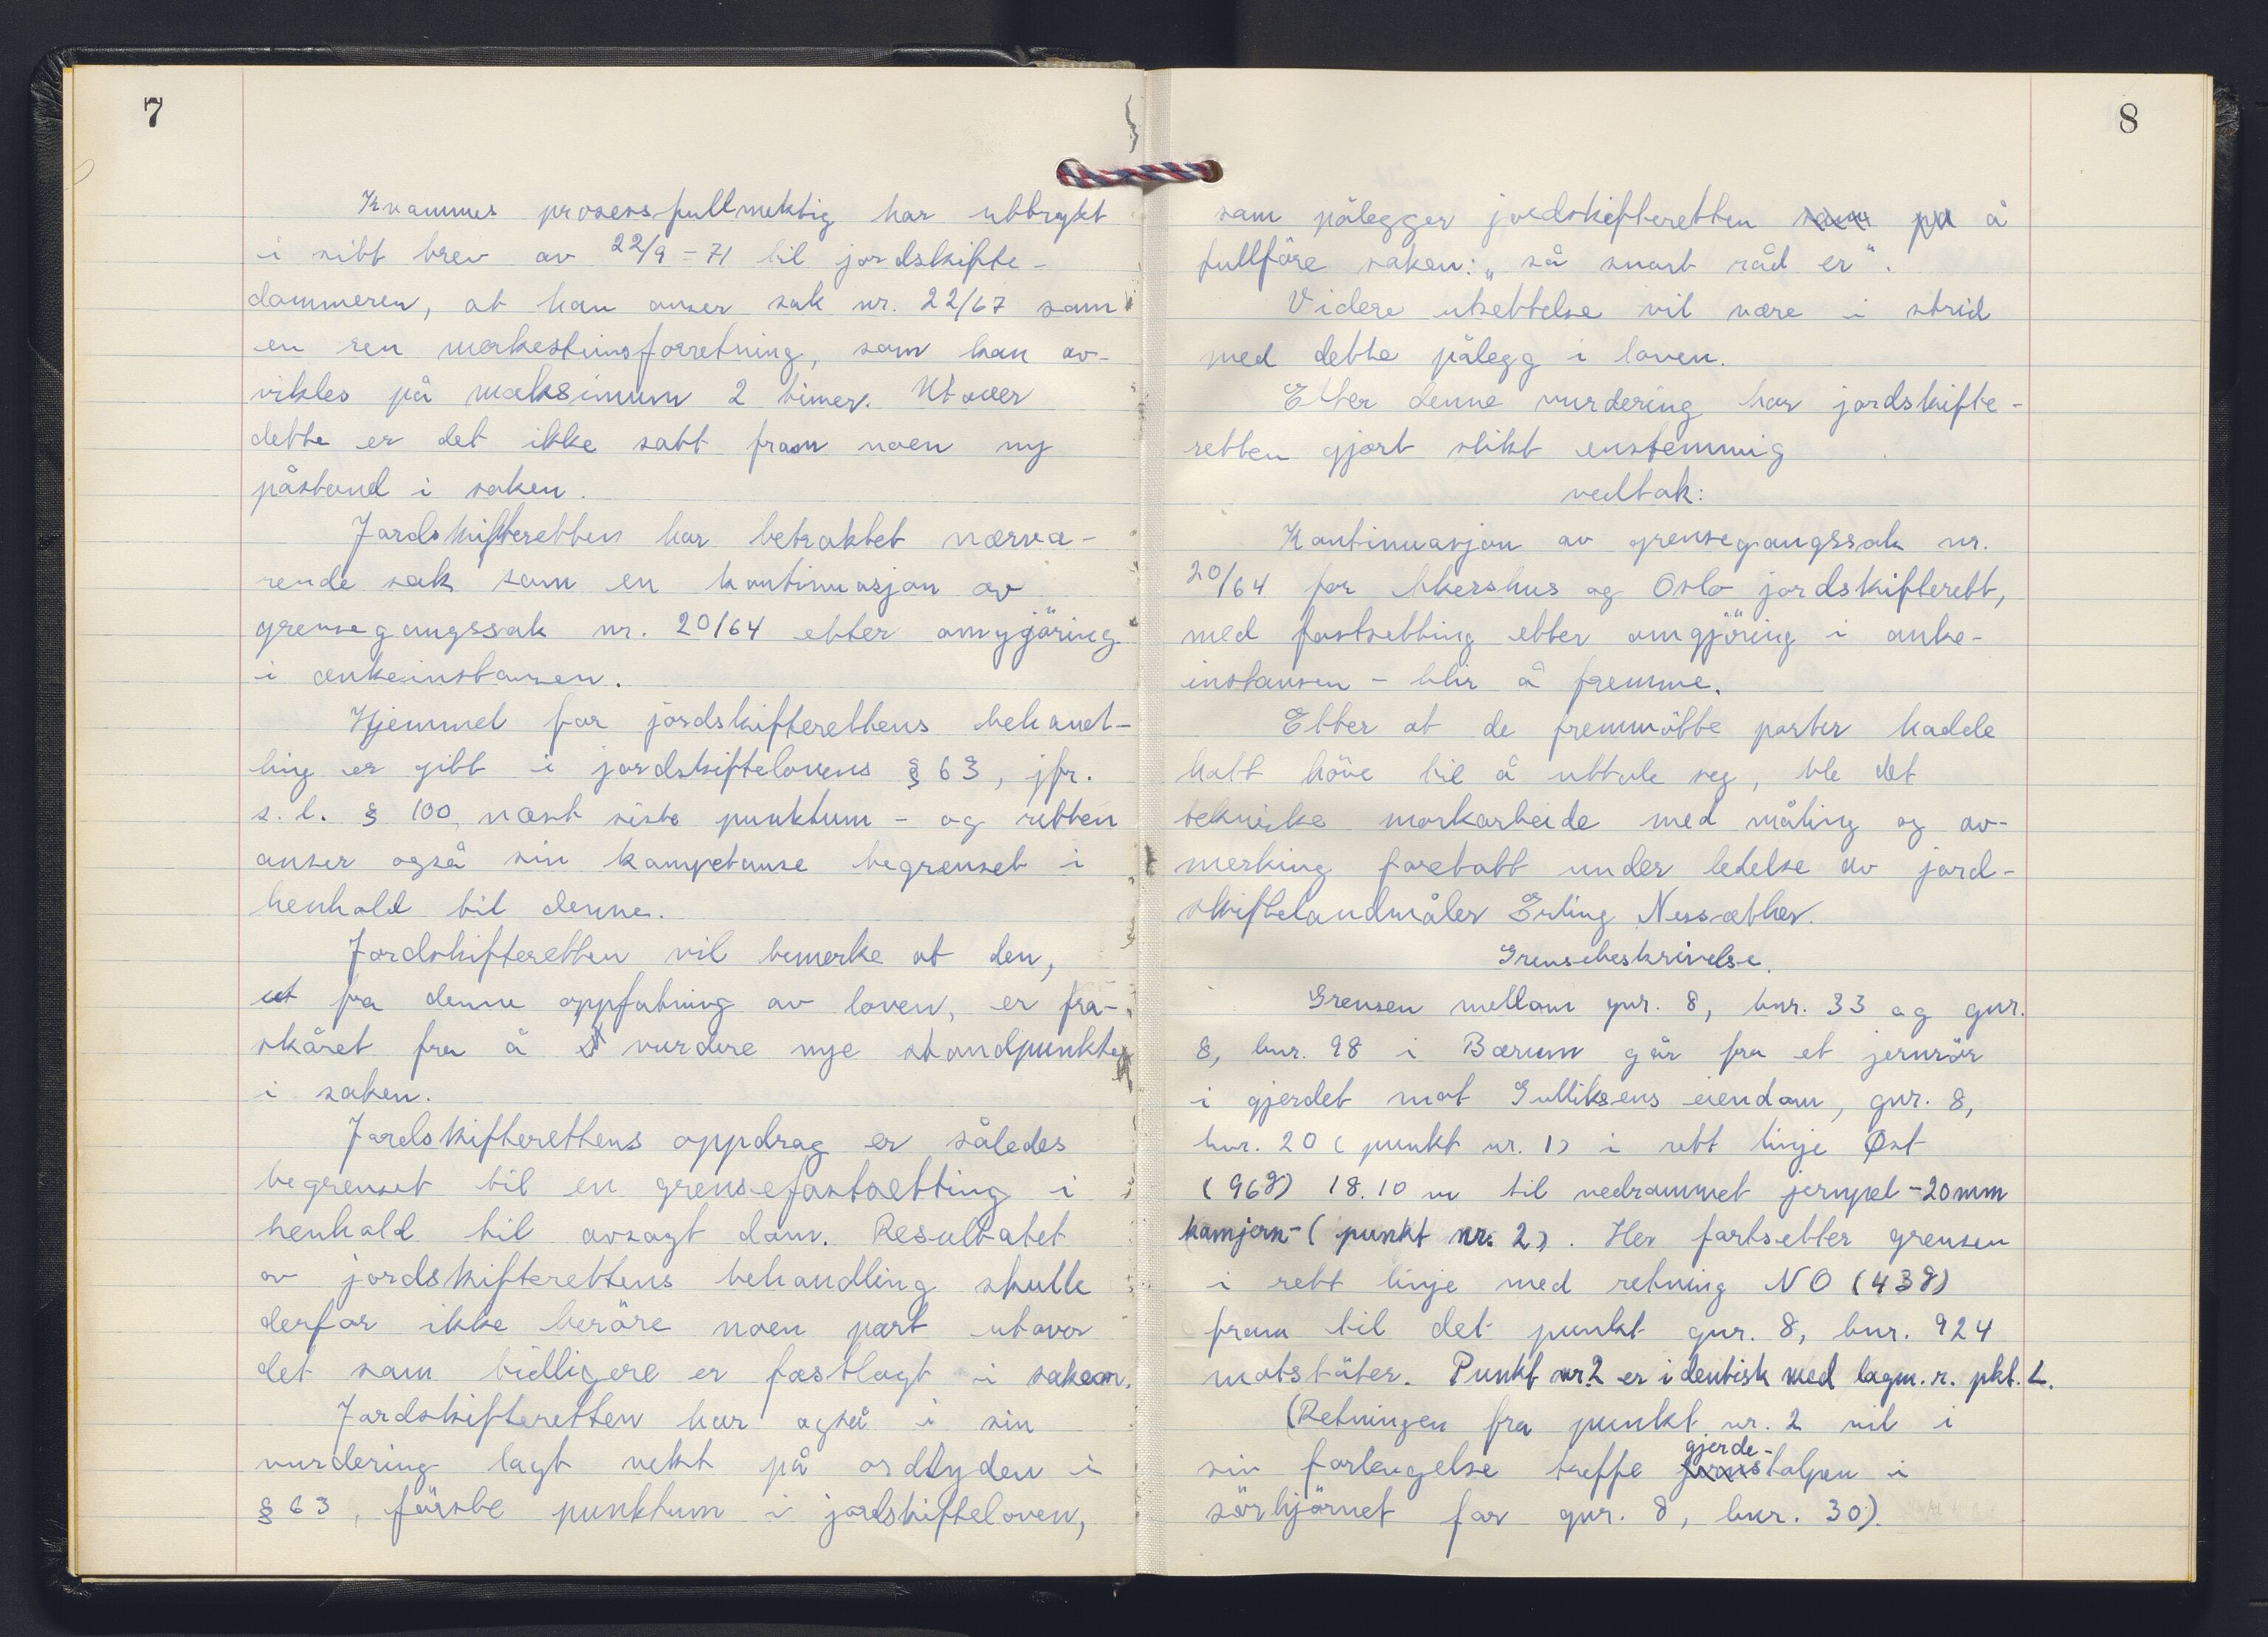 7
Kvammes prosessfullmektig har uttrykt
i sitt brev av 22/9 - 71 til jordskifte-
dommeren, at han anser sak nr. 22/67 som
en ren merkesteinsforretning, som kan av-
vikles på maksimum 2 timer. Utover
dette er det ikke satt fram noen ny
påstand i saken.
Jordskifteretten har betraktet nærvæ-
rende sak som en kontinuasjon av
grensegangssak nr. 20/64 etter omgjöring
i ankeinstansen.
Hjemmel for jordskifterettens behand-
ling er gitt i jordskiftelovens § 63, jfr.
s.l. § 100, næst siste punktum - og retten
anser også sin kompetanse begrenset i
henhold til denne.
Jordskifteretten vil bemerke at den,
ut fra denne oppfatning av loven, er fra-
skåret fra å vurdere nye standpunkter
i saken.
Jordskifterettens oppdrag er således
begrenset til en grensefastsetting i
henhold til avsagt dom. Resultatet
av jordskifterettens behandling skulle
derfor ikke beröre noen part utover
det som tidligere er fastlagt i saken.
Jordskifteretten har også i sin
vurdering lagt vekt på ordlyden i
§ 63, förste punktum i jordskifteloven,
8
som pålegger jordskifteretten som på å
fullföre saken: „så snart råd er".
Videre utsettelse vil være i strid
med dette pålegg i loven.
Etter denne vurdering har jordskifte-
retten gjort slikt enstemmig
vedtak:
Kontinuasjon av grensegangssak nr.
20/64 for Akershus og Oslo jordskifterett,
med fastsetting etter omgjöring i anke-
instansen - blir å fremme.
Etter at de fremmötte parter hadde
hatt höve til å uttale seg, ble det
tekniske markarbeide med måling og av-
merking foretatt under ledelse av jord-
skiftelandmåler Erling Nessæther.
Grensebeskrivelse.
Grensen mellom gnr. 8, bnr. 33 og gnr.
8, bnr. 98 i Bærum går fra et jernrör
i gjerdet mot Gulliksens eiendom, gnr. 8,
bnr. 20 (punkt nr. 1) i rett linje Øst
(96g) 18.10 m til nedrammet jernpel - 20mm
kamjern - (punkt nr. 2). Her fortsetter grensen
i rett linje med retning NO (43g)
fram til det punkt gnr. 8, bnr. 924
motstöter. Punkt nr 2 er identisk med lagm. r. pkt. L.
(Retningen fra punkt nr. 2 vil i
gjerde-
sin forlengelse treffe stolpen i
sörhjörnet for gnr. 8, bnr. 30).